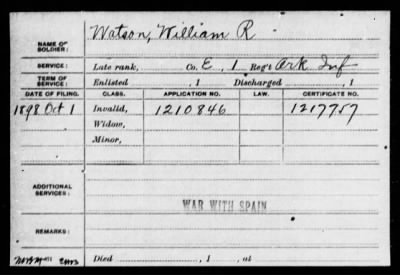 NAME OF SOLDIER: Watson, William R
SERVICE: Late rank, Co. E, 1 Reg't Ark Inf
TERM OF SERVICE: Enlisted , 1 Discharged , 1
DATE OF FILING. CLASS. APPLICATION NO. LAW. CERTIFICATE NO.
1898 Oct 1 Invalid, 1210846 1217757
Widow,
Minor,
ADDITIONAL SERVICES:
WAR WITH SPAIN
REMARKS:
Died , 1 , at